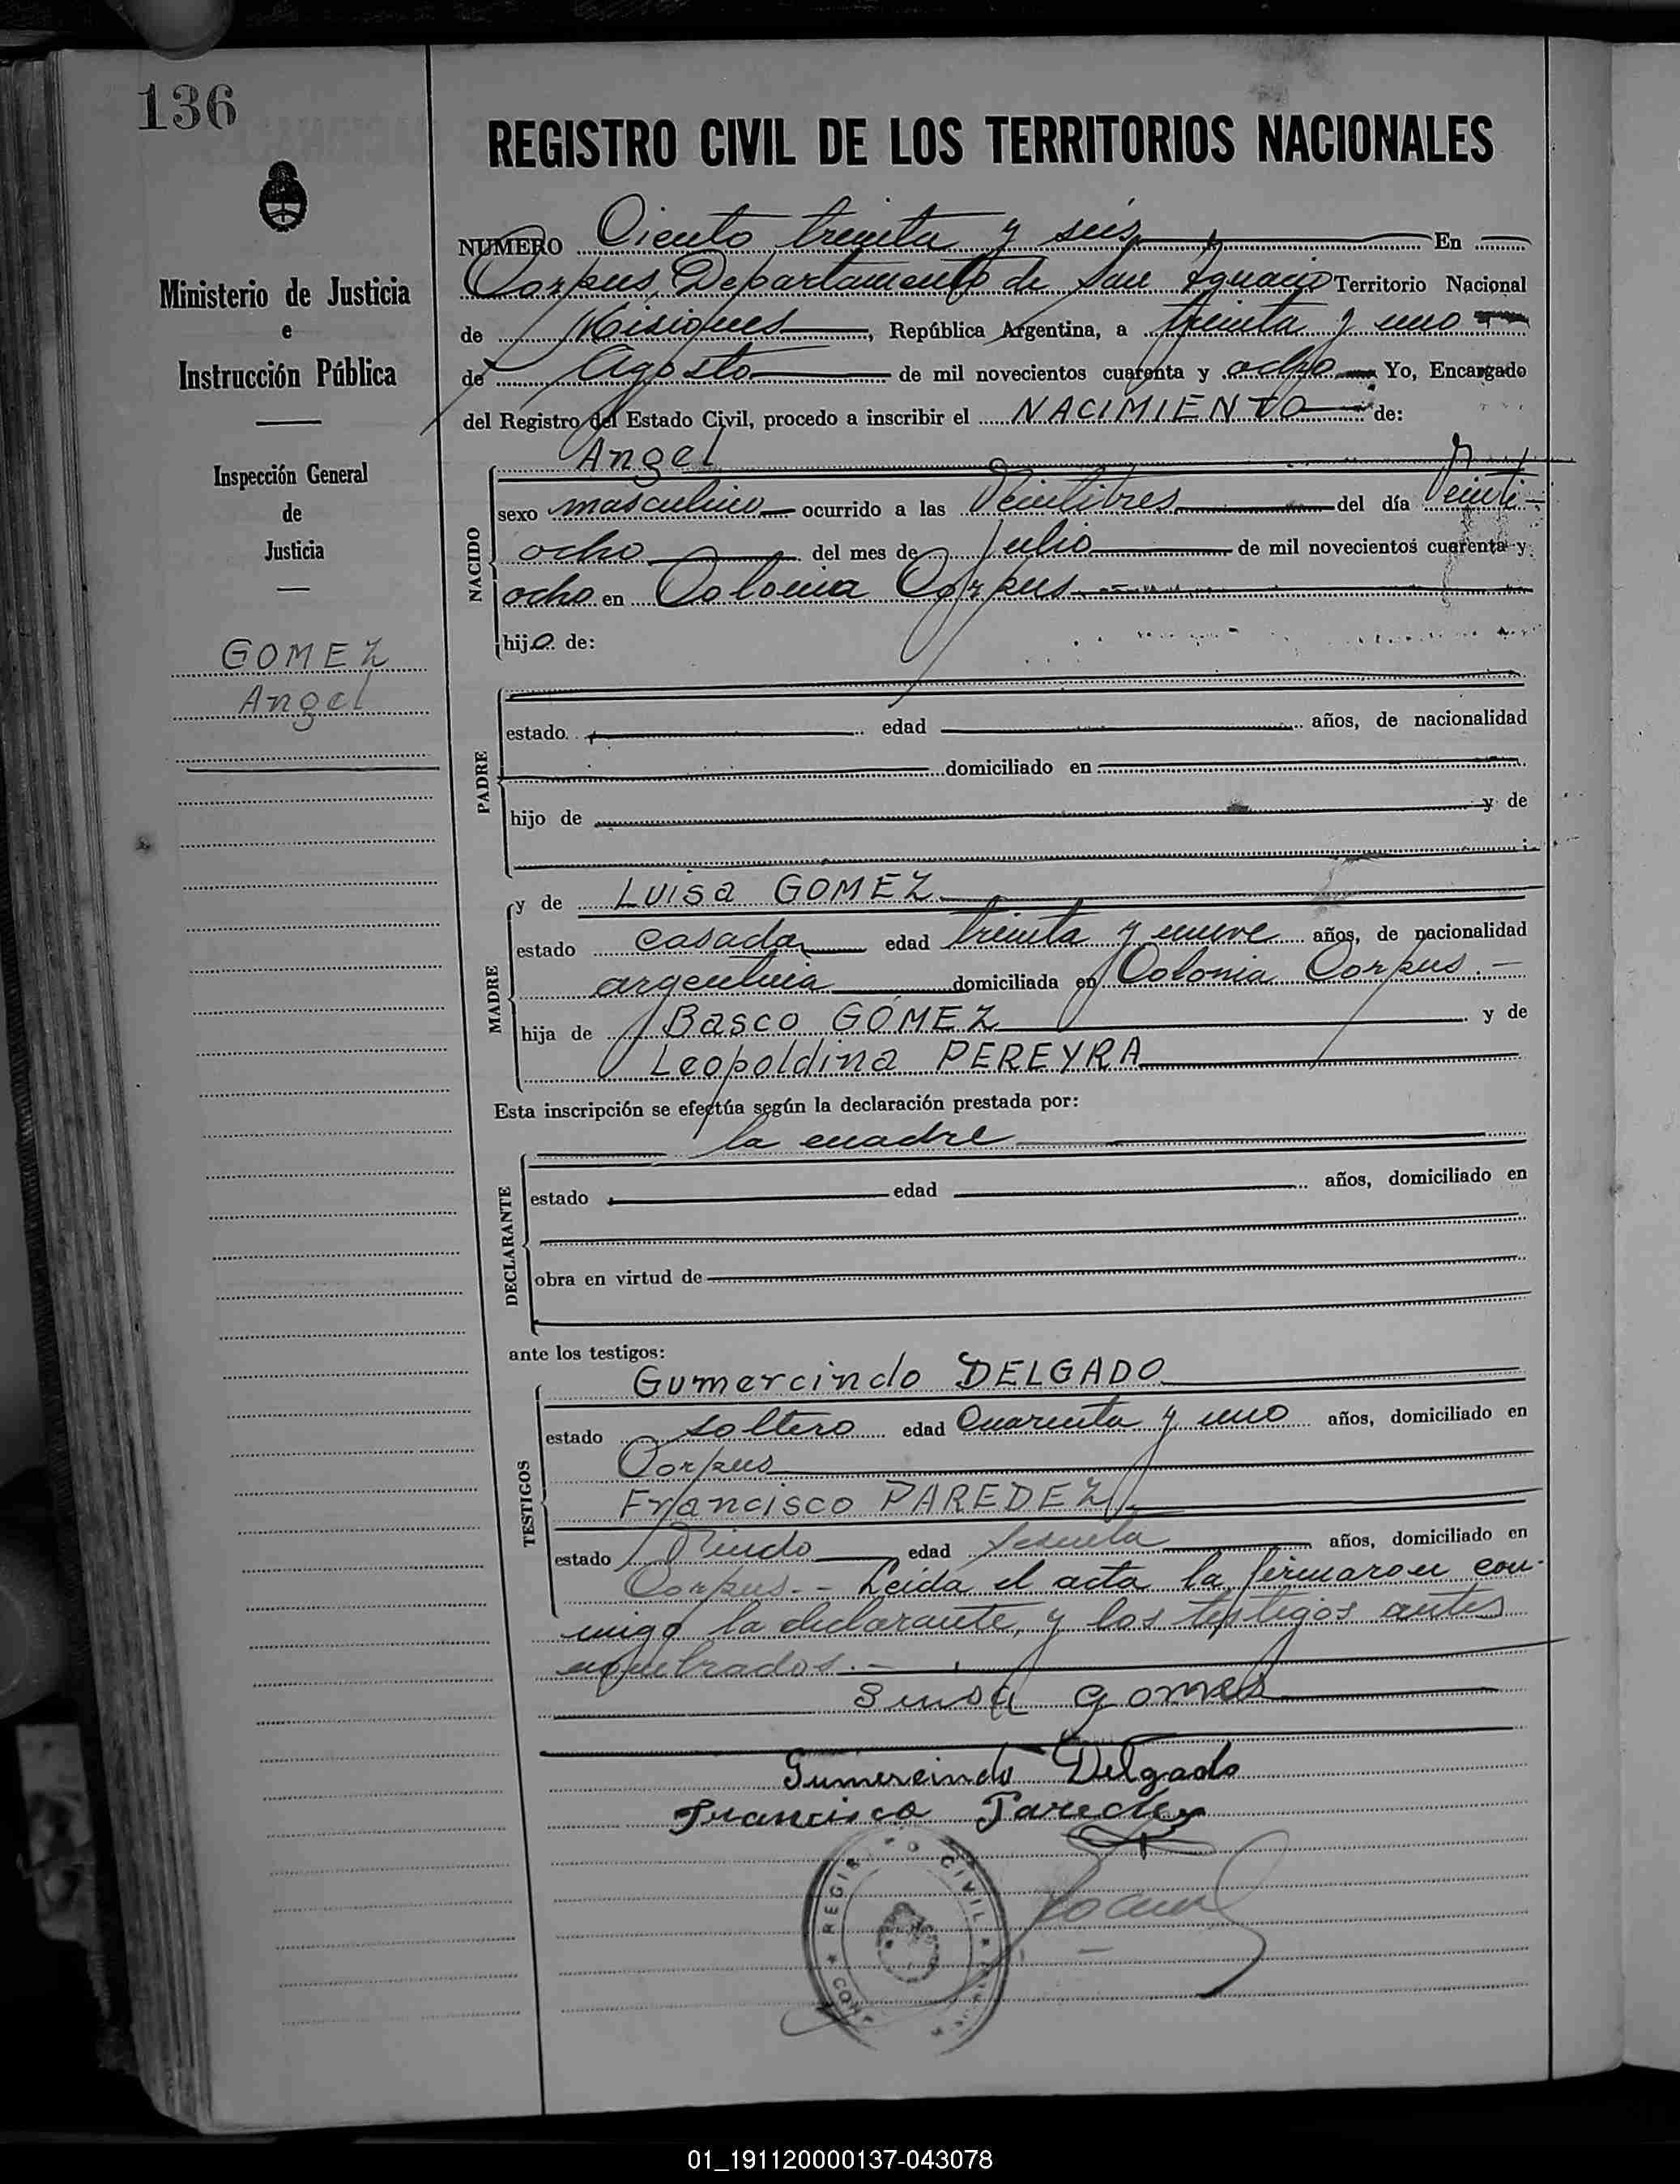 136
REGISTRO CIVIL DE LOS TERRITORIOS NACIONALES
Ministerio de Justicia
e
Instrucción Pública
Inspección General
de
Justicia
GOMEZ
Angel
NUMERO Ciento treinta y seis En
Corpus, Departamento de San Ignacio Territorio Nacional
de Misiones, República Argentina, a treinta y uno
de Agosto de mil novecientos cuarenta y ocho Yo, Encargado
del Registro del Estado Civil, procedo a inscribir el NACIMIENTO de:
NACIDO
Angel
sexo masculino ocurrido a las Veintitres del día Veinti-
ocho del mes de Julio de mil novecientos cuarenta y
ocho en Colonia Corpus
hijo de:
PADRE
estado edad años, de nacionalidad
domiciliado en
hijo de y de
MADRE
y de Luisa GOMEZ
estado casada edad treinta y nueve años, de nacionalidad
argentina domiciliada en Colonia Corpus.-
hija de Basco GOMEZ y de
Leopoldina PEREYRA
Esta inscripción se efectúa según la declaración prestada por:
la madre
DECLARANTE
estado edad años, domiciliado en
obra en virtud de
ante los testigos:
TESTIGOS
Gumercindo DELGADO
estado soltero edad Cuarenta y uno años, domiciliado en
Corpus
Francisco PAREDEZ
estado Viudo edad Sesenta años, domiciliado en
Corpus.- Leida el acta la firmaron con-
migo la declarante, y los testigos antes
nombrados.-
gomes
Gumercindo Delgado
Francisco Paredes
REGISTRO CIVIL
01_191120000137-043078